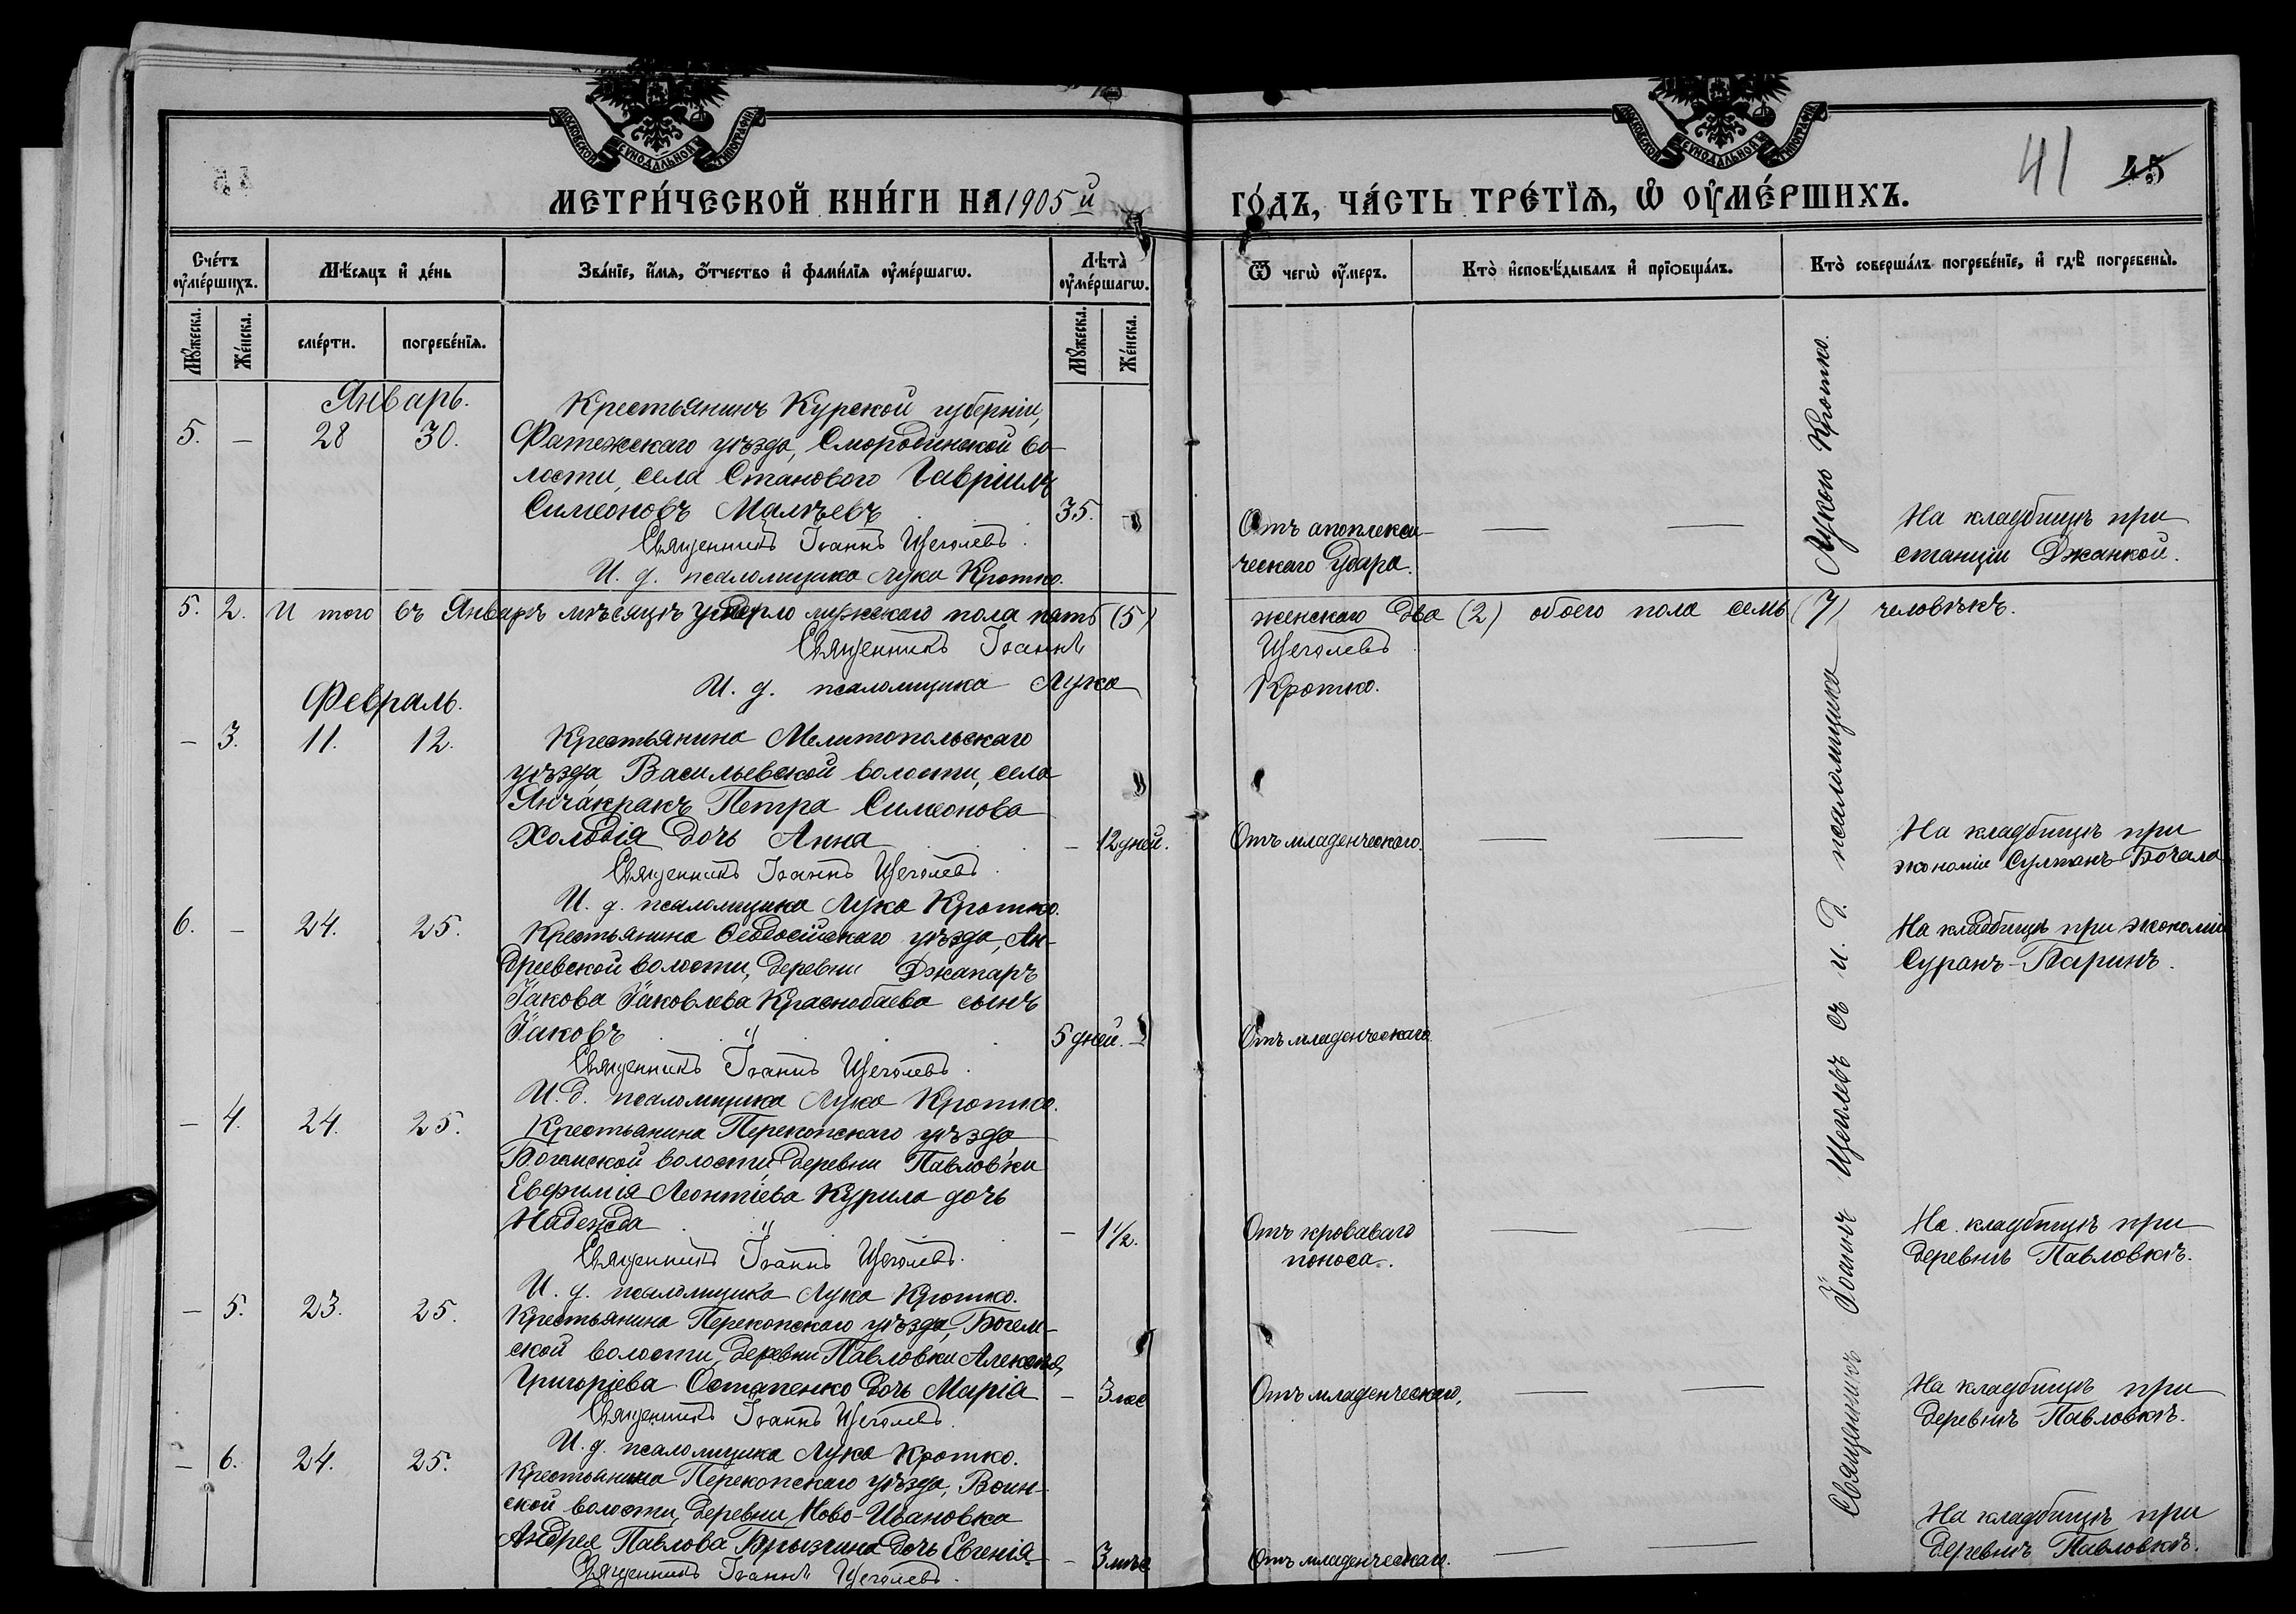 МОСКОВСКОЙ СУНОДАЛЬНОЙ ТИПОГРАФІИ
МОСКОВСКОЙ СУНОДАЛЬНОЙ ТИПОГРАФІИ
МЕТРИ́ЧЕСКОЙ КНИ́ГИ НА 1905й
ГО́ДЪ, ЧА́СТЬ ТРЕ́ТЇѦ, Ѽ ОУ҆МЕ́РШИХЪ.
41 45
Сче́тъ оу҆ме́ршихъ.
Мѣ́сяцъ и҆ де́нь
Зва́нїе, и҆́мя, ѻ҆́тчество и҆ фами́лїя оу҆ме́ршагѡ.
Лѣта̀ оу҆ме́ршагѡ.
Ѿ чегѡ̀ оу҆́меръ.
Кто̀ и҆сповѣ́дывалъ и҆ прїѡбща́лъ.
Кто̀ соверша́лъ погребе́нїе, и҆ гдѣ̀ погребены̀.
Мꙋ́жеска.
Же́нска.
сме́рти.
погребе́нїя.
Мꙋ́жеска.
Же́нска.
Январь.
5. — 28 30.
Крестьянинъ Курской губерніи,
Фатежскаго уѣзда, Смородинской во-
лости, села Становаго Гавріилъ
Симеоновъ Малѣевъ 35. —
Священникъ Іоаннъ Щеголевъ.
И. д. псаломщика Лука Кротко.
Отъ апоплекси-
ческаго удара.
На кладбищѣ при
станціи Джанкой.
5. 2. И того въ Январѣ мѣсяцѣ умерло мужескаго пола пять (5) женскаго два (2) обоего пола семь (7) человѣкъ.
Священникъ Іоаннъ Щеголевъ
И. д. псаломщика Лука Кротко.
Февраль.
— 3. 11. 12.
Крестьянина Мелитопольскаго
уѣзда, Васильевской волости, села
Янчакракъ Петра Симеонова
дочь Анна — 12 дней.
Священникъ Іоаннъ Щеголевъ.
И. д. псаломщика Лука Кротко.
Отъ младенческаго.
На кладбищѣ при
экономіи Султанъ-Бочала
6. — 24. 25.
Крестьянина Ѳеодосійскаго уѣзда, Ан-
дреевской волости, деревни Джапаръ
Іакова Іаковлева Краснобаева сынъ
Іаковъ " 5 дней. —
Священникъ Іоаннъ Щеголевъ.
И. д. псаломщика Лука Кротко.
Отъ младенческаго
На кладбищѣ при экономіи
Суранъ-Баринъ.
— 4. 24. 25.
Крестьянина Перекопскаго уѣзда
Богемской волости, деревни Павловки
Евфимія Леонтіева Курила дочь
Надежда " — 1 1/2.
Священникъ Іоаннъ Щеголевъ.
И. д. псаломщика Лука Кротко.
Отъ кроваваго
поноса.
На кладбищѣ при
деревнѣ Павловкѣ.
— 5. 23. 25.
Крестьянина Перекопскаго уѣзда, Богем-
ской волости, деревни Павловки Алексѣя
Григоріева Остапенко дочь Марія — 3 мѣс
Священникъ Іоаннъ Щеголевъ.
И. д. псаломщика Лука Кротко.
Отъ младенческаго.
На кладбищѣ при
деревнѣ Павловкѣ.
— 6. 24. 25.
Крестьянина Перекопскаго уѣзда, Воин-
ской волости, деревни Ново-Ивановка
Андрея Павлова Брызгина дочь Евгенія — 3 мѣс
Священникъ Іоаннъ Щеголевъ.
Отъ младенческаго.
На кладбищѣ при
деревнѣ Павловкѣ.
Священникъ Іоаннъ Щеголевъ съ и. д. псаломщика Лукою Кротко.